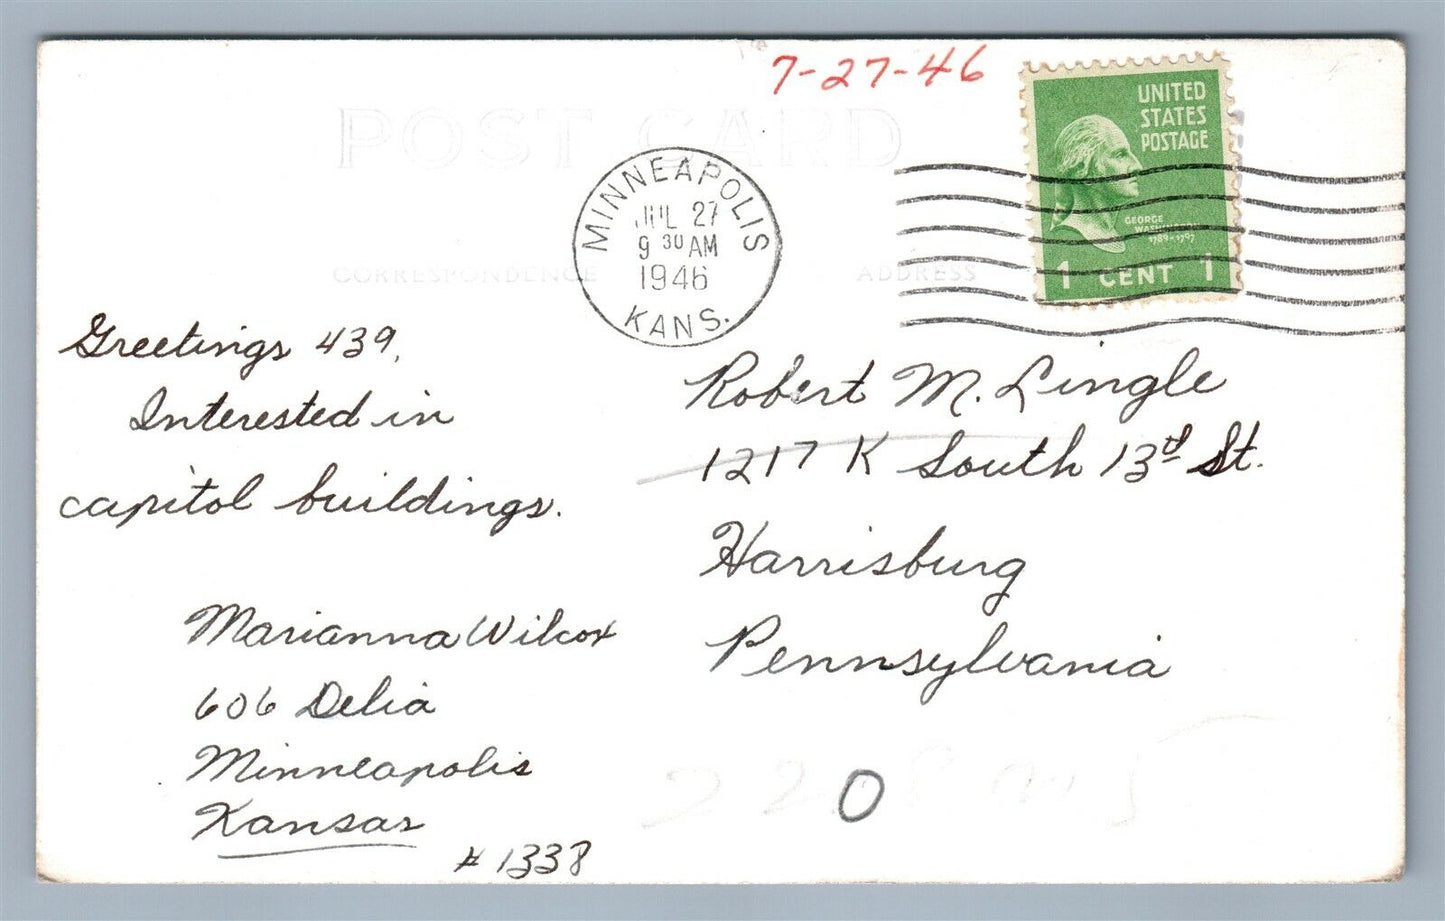 7-27-46
POST CARD
UNITED
STATES
POSTAGE
GEORGE
WASHINGTON
1789-1797
1 CENT 1
MINNEAPOLIS
JUL 27
9 30 AM
1946
KANS.
CORRESPONDENCE
ADDRESS
Greetings 439,
Interested in
capitol buildings.
Marianna Wilcox
606 Delia
Minneapolis
Kansas
# 1338
Robert M. Lingle
1217 K South 13th St.
Harrisburg
Pennsylvania
0